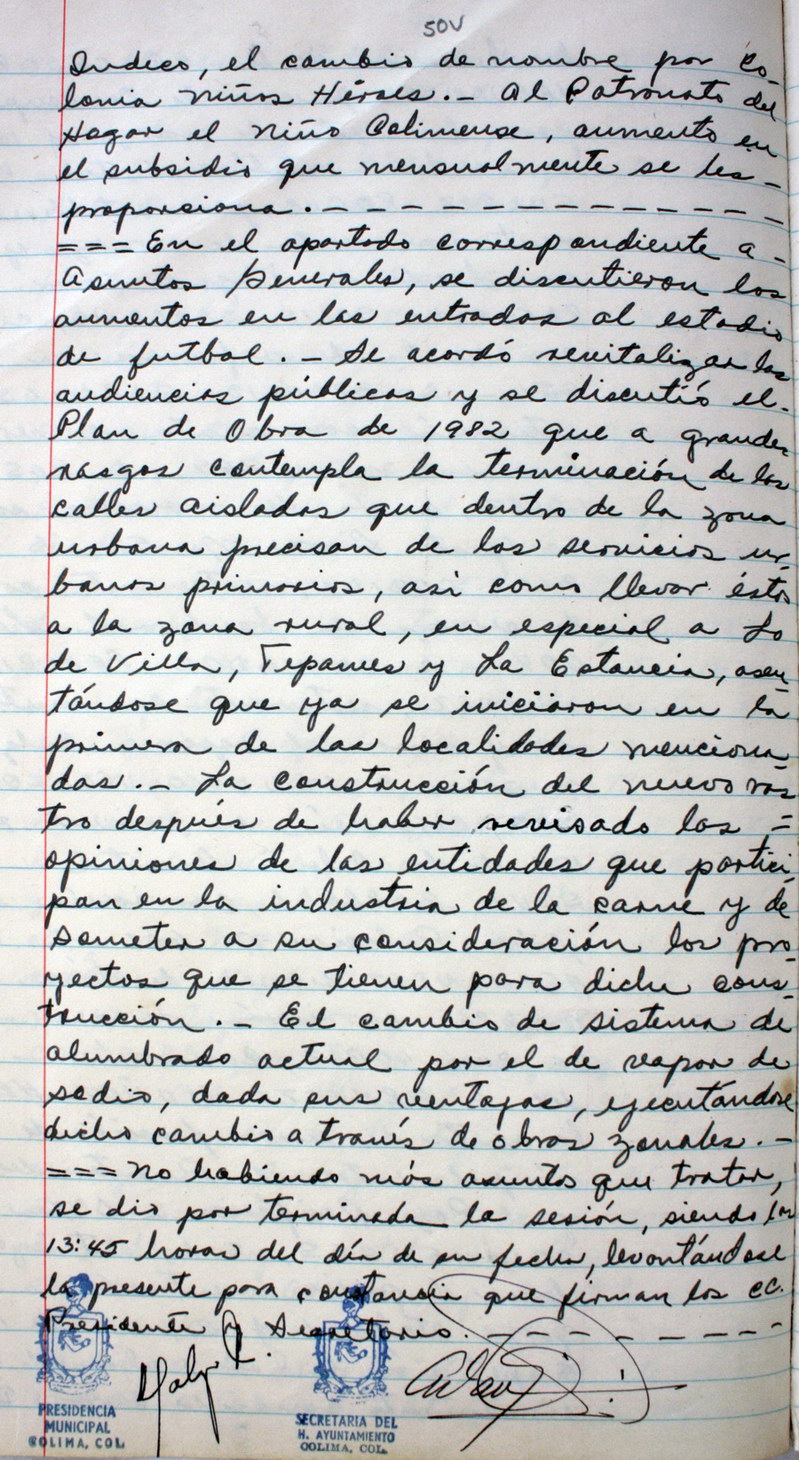 50V
Indeco, el cambio de nombre por Co-
lonia Niños Héroes.- Al Patronato del
Hogar el Niño Colimense, aumento en
el subsidio que mensualmente se les-
proporciona.- - - - - - - - - - - - - -
=== En el apartado correspondiente a-
Asuntos Generales, se discutieron los
aumentos en las entradas al estadio
de futbol.- Se acordó revitalizar las
audiencias públicas y se discutió el-
Plan de Obra de 1982 que a grandes
rasgos contempla la terminación de las
calles aisladas que dentro de la zona
urbana precisan de los servicios ur-
banos primarios, así como llevar éstos
a la zona rural, en especial a Lo
de Villa, Tepames y La Estancia, asen
tándose que ya se iniciaron en la
primera de las localidades menciona-
das.- La construcción del nuevo ras
tro después de haber revisado las =
opiniones de las entidades que partici-
pan en la industria de la carne y de
someter a su consideración los pro-
yectos que se tienen para dicha cons-
trucción.- El cambio de sistema de
alumbrado actual por el de vapor de
sodio, dada sus ventajas, ejecutándose
dicho cambio a través de obras zonales.-
=== No habiendo más asuntos que tratar,
se dio por terminada la sesión, siendo las
13:45 horas del día de su fecha, levantándose
la presente para constancia que firman los CC.
Presidente y Secretario.- - - - - - - - -
PRESIDENCIA
MUNICIPAL
COLIMA, COL.
SECRETARIA DEL
H. AYUNTAMIENTO
COLIMA, COL.